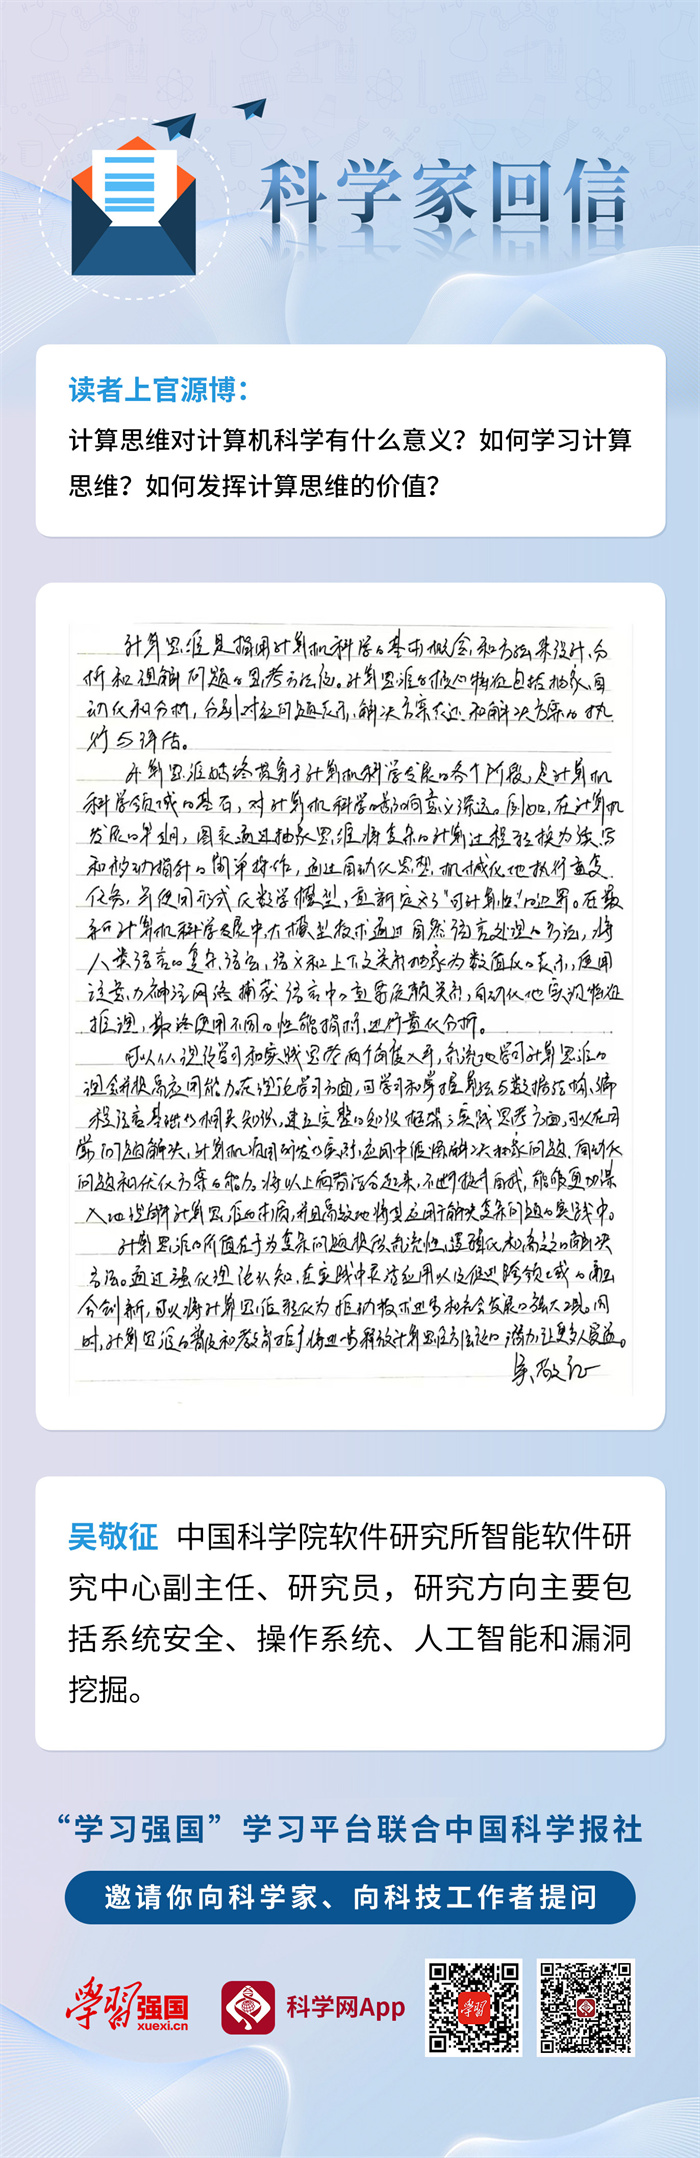 科学家回信
读者上官源博：
计算思维对计算机科学有什么意义？如何学习计算
思维？如何发挥计算思维的价值？
计算思维是指用计算机科学的基本概念和方法来设计、分
析和理解问题的思考方法论。计算思维的核心特征包括抽象、自
动化和分析，分别对应问题表示、解决方案表述和解决方案的执
行与评估。
计算思维始终贯穿于计算机科学发展的各个阶段，是计算机
科学领域的基石，对计算机科学的影响意义深远。例如，在计算机
发展的早期，图灵通过抽象思维将复杂的计算过程转换为读、写
和移动指针的简单操作，通过自动化思想，机械化地执行重复
任务，并使用形式化数学模型，重新定义了“可计算性”的边界。在最
新的计算机科学发展中，大模型技术通过自然语言处理的方法，将
人类语言的复杂语法、语义和上下文关系抽象为数值化的表示，使用
注意力神经网络捕获语言中的重要依赖关系，自动化地实现特征
推理，最终使用不同的性能指标，进行量化分析。
可以从理论学习和实践思考两个角度入手，系统地学习计算思维的
理念并提高应用能力。在理论学习方面，可学习和掌握算法与数据结构、编
程语言基础的相关知识，建立完整的知识框架；实践思考方面，可以在日
常问题解决，计算机项目研发的实际应用中锻炼解决抽象问题、自动化
问题和优化方案的能力。将以上两者结合起来，不断提升自我，能够更加深
入地理解计算思维的本质，并且高效地将其应用于解决复杂问题的实践中。
计算思维的价值在于为复杂问题提供系统性、逻辑化和高效的解决
方法。通过强化理论认知，在实践中灵活应用以及促进跨领域的融
合创新，可以将计算思维转化为推动技术进步和社会发展的强大工具。同
时，计算思维的普及和教育推广将进一步释放计算思维方法论的潜力，让更多人受益。
吴敬征
吴敬征 中国科学院软件研究所智能软件研
究中心副主任、研究员，研究方向主要包
括系统安全、操作系统、人工智能和漏洞
挖掘。
“学习强国”学习平台联合中国科学报社
邀请你向科学家、向科技工作者提问
学习强国
xuexi.cn
科学网App
学习